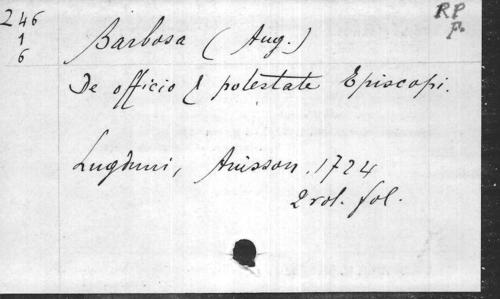 246
1
6
RP
p.
Barbosa (Aug.)
De officio & potestate Episcopi.
Lugduni, Anisson. 1724
2 vol. fol.